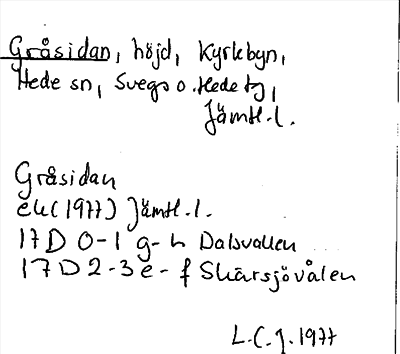 Gråsidan, höjd, Kyrkbyn,
Hede sn, Svegs o. Hede tg,
Jämtl. l.
Gråsidan
ek (1977) Jämtl. l.
17 D 0-1 g-h Dalsvallen
17 D 2-3 e-f Skärsjövålen
L.C.J. 1977